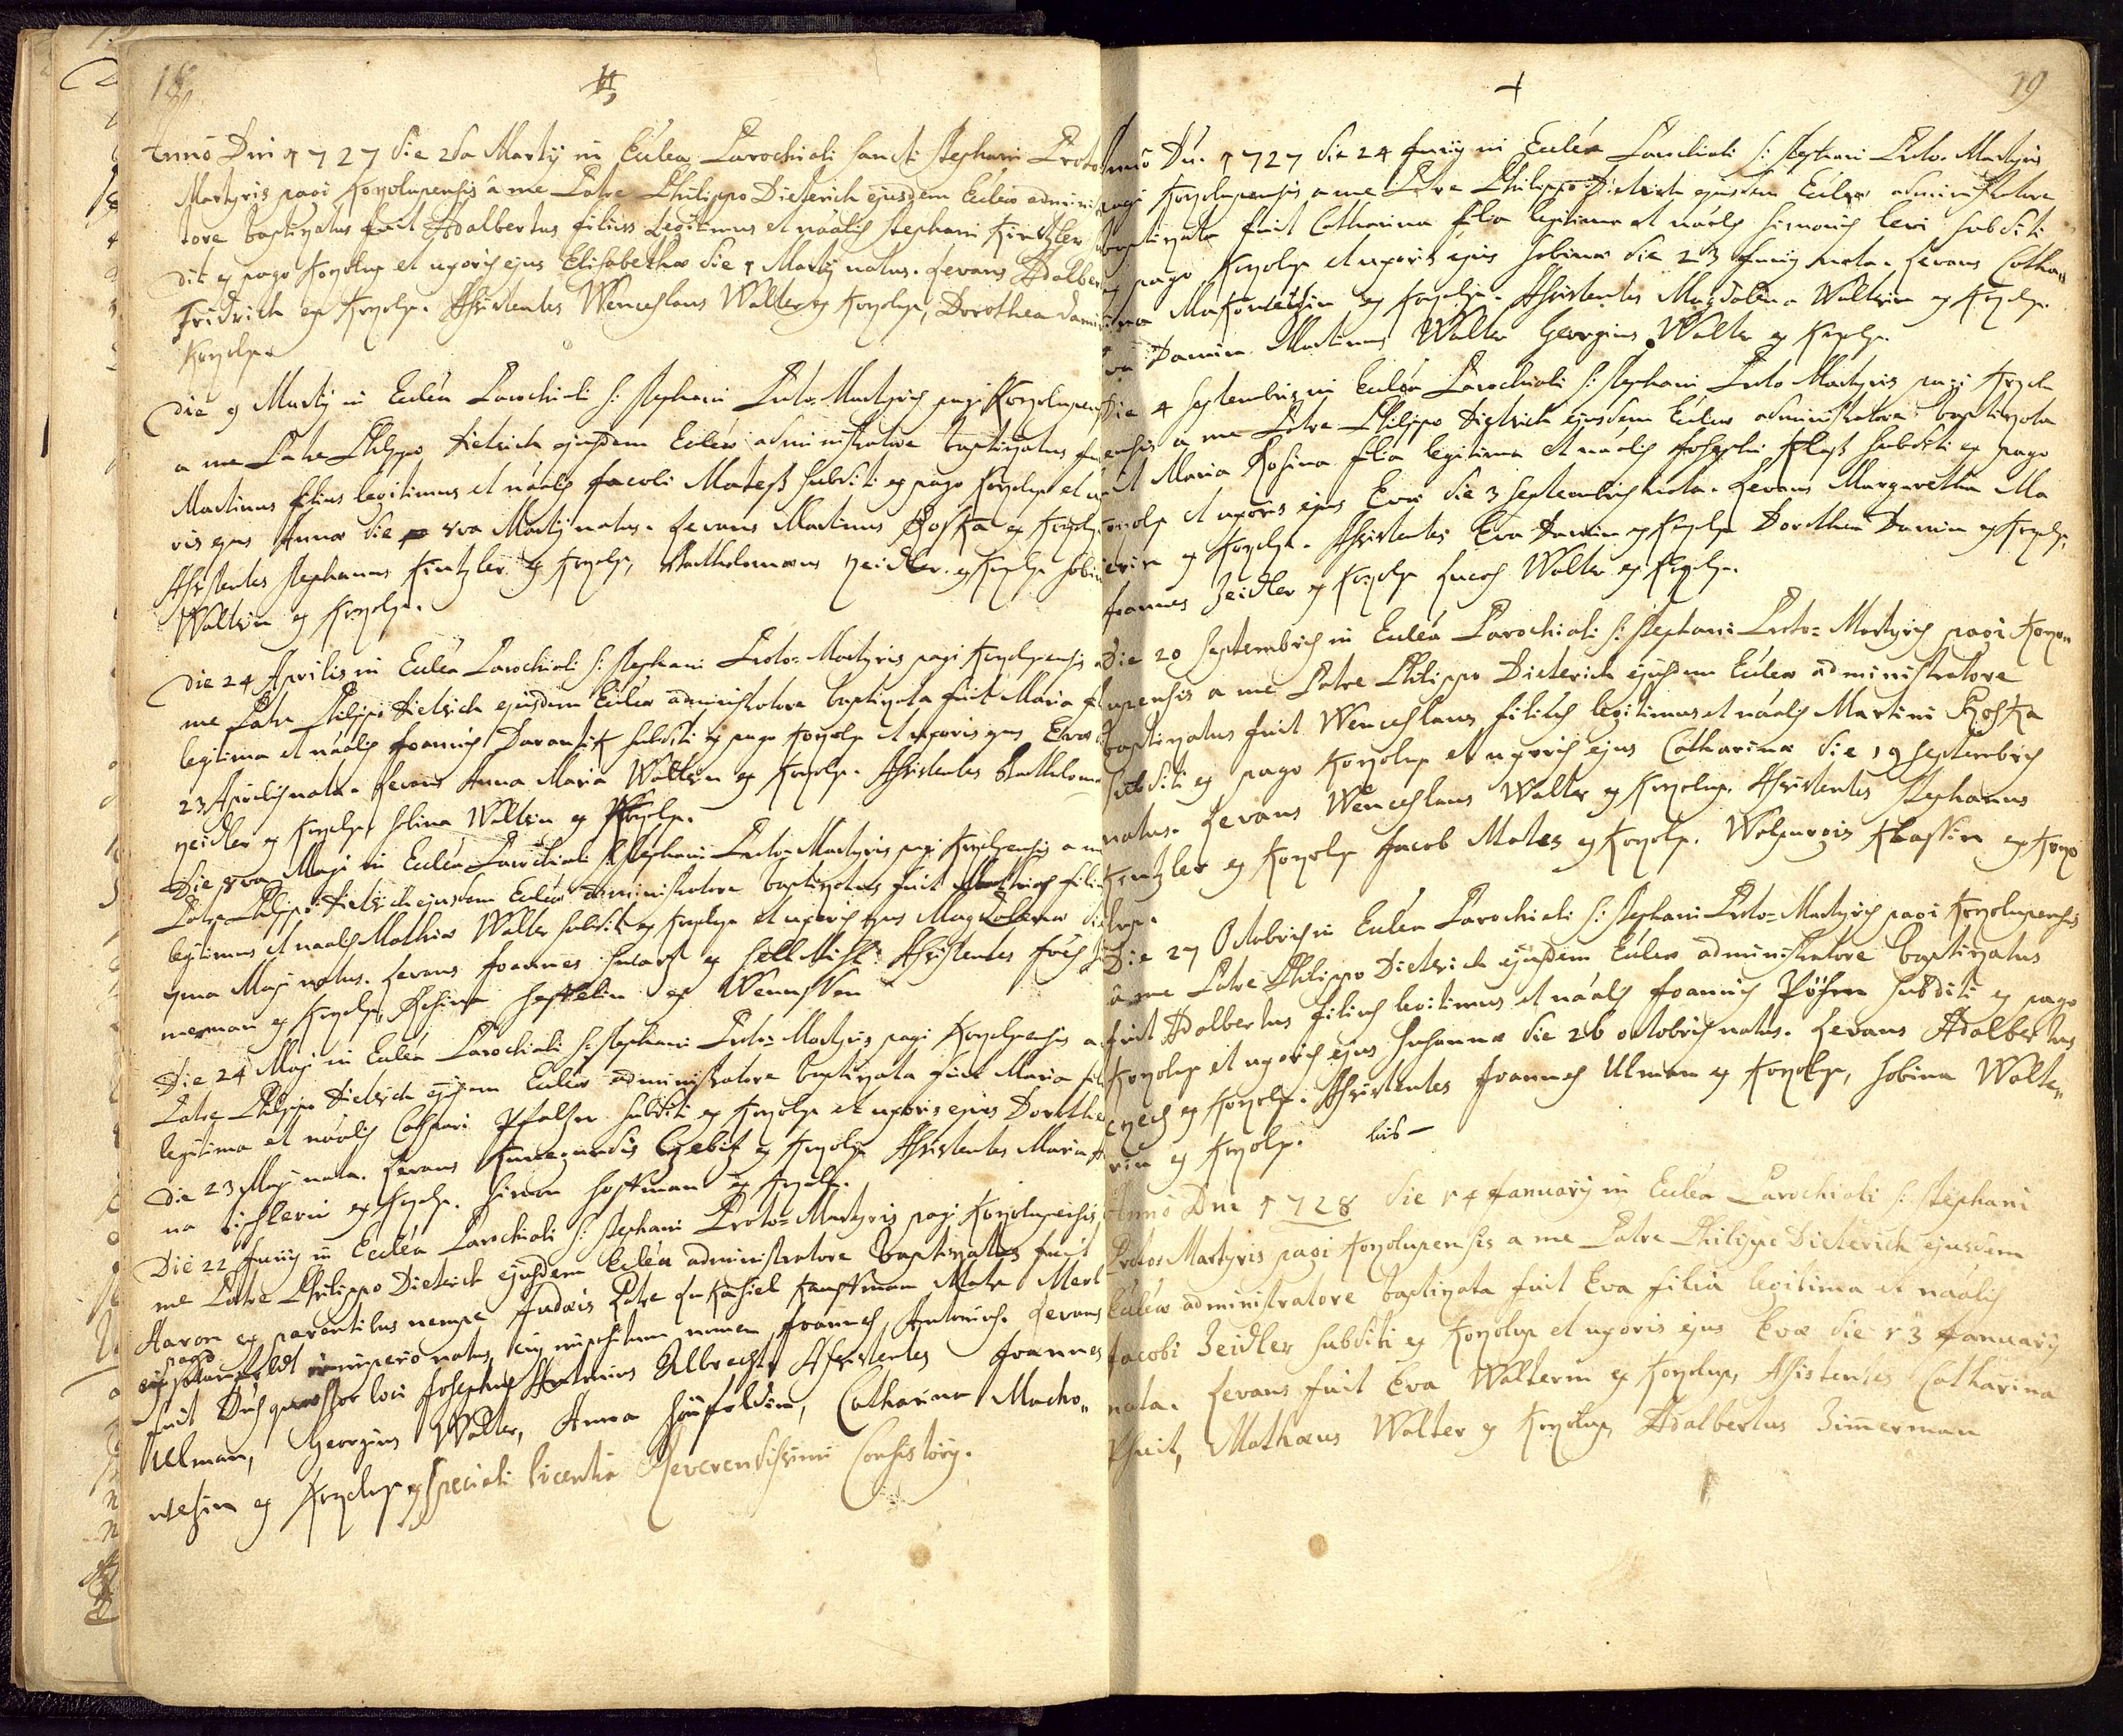 18
Anno Dni 1727 die 2da Martÿ in Eccléa Parochiali Sancti Stephani Proto
Martyris pagi Kozolupensis à me Patre Philippo Dieterich ejusdem Eccléæ admini
tore baptizatus fuit Adalbertus filius legitimus et náális Stephani Kintzler
dit ex pago Kozolup et uxoris ejus Elisabethæ die 1 Martÿ natus. Levans Adalber
Fridrich ex Kozolup. Assistentes Wenceslaus Walter ex Kozolup, Dorothea Damin
Kozolup.
Die 9 Martÿ in Eccléa Parochiali S: Stephani Proto-Martyris pagi Kozolupen
a me Patre Philippo Dietrich ejusdem Eccléæ administratore baptizatus fu
Martinus filius legitimus et náális Jacobi Mateß subditi ex pago Kozolup et ux
ris ejus Annæ die 8va Martÿ natus. Levans Martinus Roska ex Kozolup
Assistentes Stephanus Kintzler ex Kozolup, Bartholomæus Zeidler ex Kozolup Sabin
Waltrin ex Kozolup.
Die 24 Aprilis in Eccléa Parochiali S: Stephani Proto-Martyris pagi Kozolupensis a
me Patre Philippo Dietrich ejusdem Eccléæ administratore baptizata fuit Maria fi
legitima et náális Joannis Darantik subditi ex pago Kozolup et uxoris ejus Evæ
23 Aprilis nata. Levans Anna Maria Waltrin ex Kozolup. Assistentes Bartholomæ
Zeidler ex Kozolup, Sabina Waltrin ex Kozolup.
Die 8va Maji in Eccléa Parochiali S: Stephani Proto-Martyris pagi Kozolupensis a me
Patre Philippo Dietrich ejusdem Eccléæ administratore baptizatus fuit filius
legitimus et náális Mathiæ Walter subditi ex Kozolup et uxoris ejus Magdalenæ die
Maji natus. Levans Joannes Assistentes
merman ex Kozolup, Rosina ex
Die 24 Maji in Eccléa Parochiali S: Stephani Proto-Martyris pagi Kozolupensis a
Patre Philippo Dietrich ejusdem Eccléæ administratore baptizata fuit Maria fil
legitima et náális Caspari Pfaltzer subditi ex Kozolup et uxoris ejus Dorothe
Die 23 Maji nata. Levans Kunegundis Gebitz ex Kozolup Assistentes Maria
na ex Kozolup. Simon Hoffman ex Kozolup.
Die 22 Junÿ in Eccléa Parochiali S: Stephani Proto-Martyris pagi Kozolupensis
me Patre Philippo Dietrich ejusdem Eccléæ administratore baptizatus fuit
Aaron ex parentibus nempe Judæis Patre Kauffman Matre Merl
pago
in imperio natus, cui impositum nomen Joannes Antonius. Levans
fuit Dns quæstor loci Josephus Antonius Albrecht, Assistentes Joannes
Ulman, Georgius Walter, Anna Catharina Macho„
ex Kozolup ex speciali licentia Reverendissimi Consistorÿ.
19
Anno Dn. 1727 die 24 Junÿ in Eccléa Parochiali S: Stephani Proto-Martyris
pagi Kozolupensis a me Patre Philippo Dietrich ejusdem Eccléæ administratore
baptizata fuit Catharina filia legitima et náális Simonis subditi
ex pago Kozolup et uxoris ejus Sabinæ die 23 Junÿ nata. Levans Catha„
rina ex Kozolup. Assistentes Magdalena Waltrin ex Kozolup.
Eva Damin Martinus Walter Georgius Walter ex Kozolup.
Die 4 Septembris in Eccléa Parochiali S: Stephani Proto Martyris pagi Kozolu
ensis a me Patre Philippo Dietrich ejusdem Eccléæ administratore baptizata
fuit Maria Rosina filia legitima et náális Josephi Klaß subditi ex pago
Kozolup et uxoris ejus Evæ die 3 Septembris nata. Levans Margaretha Ma
ex Kozolup. Assistentes Eva Damin ex Kozolup Dorothea Damin ex Kozolup,
Joannes Zeidler ex Kozolup Lucas Walter ex Kozolup.
Die 20 Septembris in Eccléa Parochiali S: Stephani Proto-Martyris pagi Kozo„
lupensis a me Patre Philippo Dieterich ejusdem Eccléæ administratore
baptizatus fuit Wenceslaus filius legitimus et náális Martini Roska
subditi ex pago Kozolup et uxoris ejus Catharinæ die 19 Septembris
natus. Levans Wenceslaus Walter ex Kozolup, Assistentes Stephanus
Kintzler ex Kozolup Jacob Mates ex Kozolup. Walpurgis Klassin ex Kozo
lup.
Die 27 Octobris in Eccléa Parochiali S: Stephani Proto-Martyris pagi Kozolupensis
à me Patre Philippo Dietrich ejusdem Eccléæ administratore baptizatus
fuit Adalbertus filius legitimus et náális Joannis subditi ex pago
Kozolup et uxoris ejus Susannæ die 26 octobris natus. Levans Adalbertus
ex Kozolup. Assistentes Joannes Ulman ex Kozolup, Sabina Walte„
rin ex Kozolup.
Anno Dni 1728 die 14 January in Eccléa Parochiali S: Stephani
Proto-Martyris pagi Kozolupensis a me Patre Philippo Dieterich ejusdem
Eccléæ administratore baptizata fuit Eva filia legitima et náális
Jacobi Zeidler subditi ex Kozolup et uxoris ejus Evæ die 13 January
nata. Levans fuit Eva Walterin ex Kozolup, Assistentes Catharina
Mathæus Walter ex Kozolup, Adalbertus Zimerman